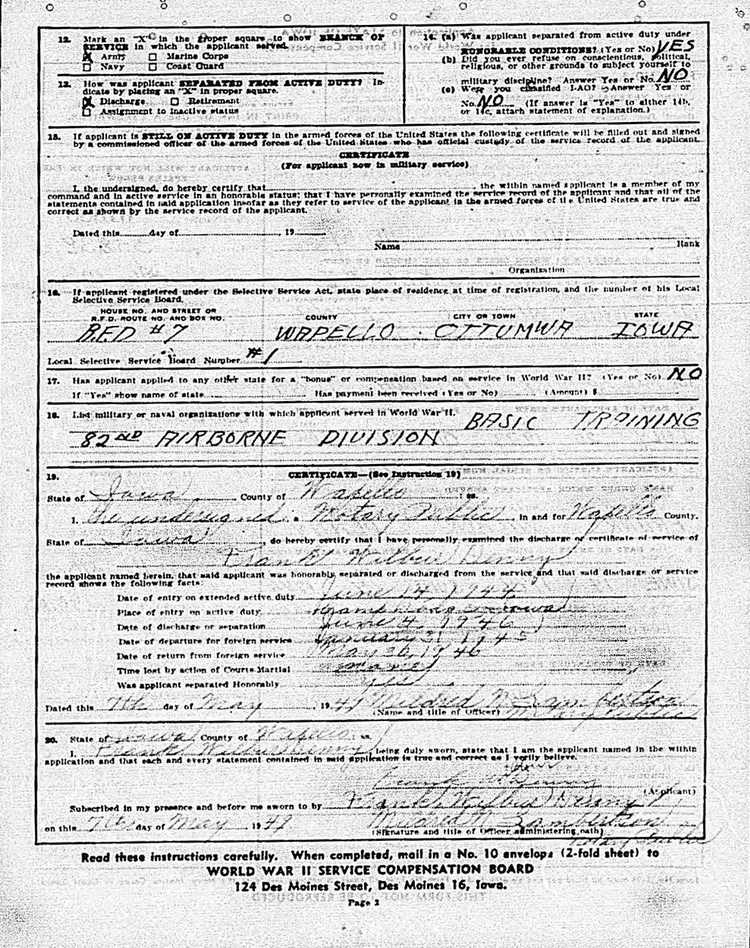 12. Mark an "X" in the proper square to show BRANCH OF
SERVICE in which the applicant served.
X Army □ Marine Corps
□ Navy □ Coast Guard
13. How was applicant SEPARATED FROM ACTIVE DUTY? In-
dicate by placing an "X" in proper square.
X Discharge □ Retirement
□ Assignment to inactive status
14. (a) Was applicant separated from active duty under
HONORABLE CONDITIONS? (Yes or No) YES
(b) Did you ever refuse on conscientious, political,
religious, or other grounds to subject yourself to
military discipline? Answer Yes or No. NO
(c) Were you classified I-AO? Answer Yes or
No. NO (If answer is "Yes" to either 14b,
or 14c, attach statement of explanation.)
15. If applicant is STILL ON ACTIVE DUTY in the armed forces of the United States the following certificate will be filled out and signed
by a commissioned officer of the armed forces of the United States who has official custody of the service record of the applicant.
CERTIFICATE
(For applicant now in military service)
I, the undersigned, do hereby certify that the within named applicant is a member of my
command and in active service in an honorable status; that I have personally examined the service record of the applicant and that all of the
statements contained in said application insofar as they refer to service of the applicant in the armed forces of the United States are true and
correct as shown by the service record of the applicant.
Dated this day of , 19
Name Rank
Organization
16. If applicant registered under the Selective Service Act, state place of residence at time of registration, and the number of his Local
Selective Service Board.
HOUSE NO. AND STREET OR
R.F.D. ROUTE NO. AND BOX NO. COUNTY CITY OR TOWN STATE
R.F.D #7 WAPELLO OTTUMWA IOWA
Local Selective Service Board Number #1
17. Has applicant applied to any other state for a "bonus" or compensation based on service in World War II? (Yes or No) NO
If "Yes" show name of state Has payment been received (Yes or No) (Amount) $
18. List military or naval organizations with which applicant served in World War II. BASIC TRAINING
82ND AIRBORNE DIVISION
19. CERTIFICATE—(See Instruction 19)
State of Iowa County of Wapello ss.
I, the undersigned, a Notary Public, in and for Wapello County,
State of Iowa, do hereby certify that I have personally examined the discharge or certificate of service of
Frank Wilbur Denny
the applicant named herein, that said applicant was honorably separated or discharged from the service and that said discharge or service
record shows the following facts:
Date of entry on extended active duty June 14, 1944
Place of entry on active duty Camp Dodge Iowa
Date of discharge or separation June 4, 1946
Date of departure for foreign service January 31, 1945
Date of return from foreign service May 1946
Time lost by action of Courts-Martial none
Was applicant separated Honorably Yes
Dated this 7th day of May, 1949 Mildred M. Lambertson
(Name and title of Officer) Notary Public
20. State of Iowa County of Wapello ss.
I, Frank Wilbur Denny being duly sworn, state that I am the applicant named in the within
application and that each and every statement contained in said application is true and correct as I verily believe.
(Applicant)
Subscribed in my presence and before me sworn to by Frank Wilbur Denny
on this 7th day of May 1949 Mildred M. Lambertson
(Signature and title of Officer administering oath)
Notary Public
Read these instructions carefully. When completed, mail in a No. 10 envelope (2-fold sheet) to
WORLD WAR II SERVICE COMPENSATION BOARD
124 Des Moines Street, Des Moines 16, Iowa.
Page 2